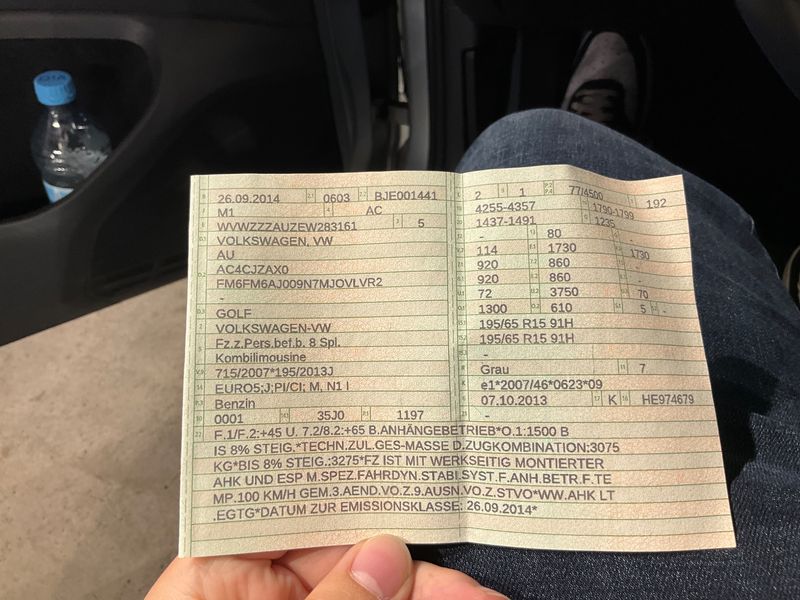 26.09.2014 0603 BJE001441
M1 AC
WVWZZZAUZEW283161 5
VOLKSWAGEN, VW
AU
AC4CJZAX0
FM6FM6AJ009N7MJOVLVR2
-
GOLF
VOLKSWAGEN-VW
Fz.z.Pers.bef.b. 8 Spl.
Kombilimousine
715/2007*195/2013J
EURO5;J;PI/CI; M, N1 I
Benzin
0001 35J0 1197
2 1 77/4500 192
4255-4357 1790-1799
1437-1491 1235
- 80 -
114 1730 1730
920 860 -
920 860 -
72 3750 70
1300 610 5 -
195/65 R15 91H
195/65 R15 91H
-
Grau 7
e1*2007/46*0623*09
07.10.2013 K HE974679
-
F.1/F.2:+45 U. 7.2/8.2:+65 B.ANHÄNGEBETRIEB*O.1:1500 B
IS 8% STEIG.*TECHN.ZUL.GES-MASSE D.ZUGKOMBINATION:3075
KG*BIS 8% STEIG.:3275*FZ IST MIT WERKSEITIG MONTIERTER
AHK UND ESP M.SPEZ.FAHRDYN.STABI.SYST.F.ANH.BETR.F.TE
MP.100 KM/H GEM.3.AEND.VO.Z.9.AUSN.VO.Z.STVO*WW.AHK LT
.EGTG*DATUM ZUR EMISSIONSKLASSE: 26.09.2014*